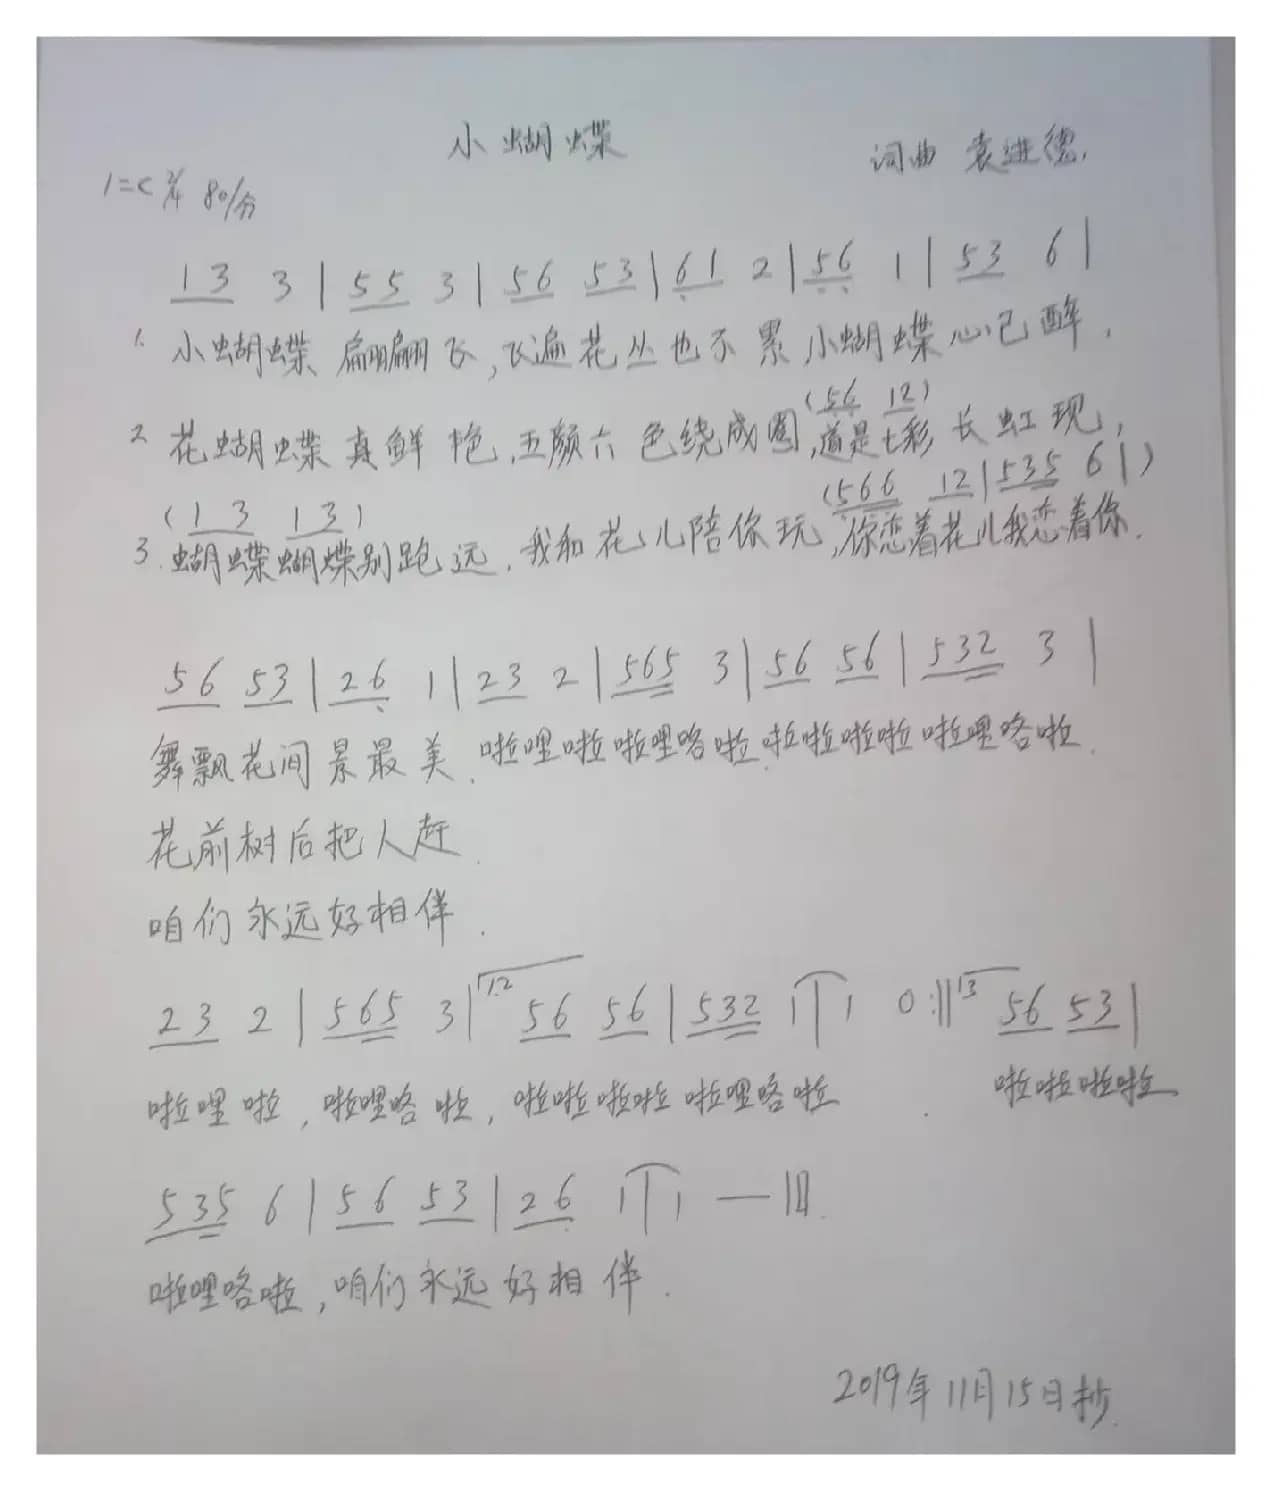 小蝴蝶
词曲 袁进德.
1=C 2/4 80/分
1 3 3 | 5 5 3 | 5 6 5 3 | 6 1 2 | 5 6 1 | 5 3 6 |
1. 小蝴蝶 翩翩飞, 飞遍花丛也不累, 小蝴蝶心已醉.
(5 6 1 2)
2. 花蝴蝶真鲜艳, 五颜六色绕成圈, 道是七彩长虹现,
(1 3 1 3)
(5 6 6 1 2 | 5 3 5 6 | )
3. 蝴蝶蝴蝶别跑远. 我和花儿陪你玩, 你恋着花儿我恋着你.
5 6 5 3 | 2 6 1 | 2 3 2 | 5 6 5 3 | 5 6 5 6 | 5 3 2 3 |
舞飘花间景最美. 啦哩啦啦哩咯啦. 啦啦啦啦啦哩咯啦.
花前树后把人赶.
咱们永远好相伴.
2 3 2 | 5 6 5 3 | 1.2 5 6 5 6 | 5 3 2 1 | 1 0 :|| 3 5 6 5 3 |
啦哩啦, 啦哩咯啦, 啦啦啦啦啦哩咯啦. 啦啦啦啦
5 3 5 6 | 5 6 5 3 | 2 6 1 | 1 — ||
啦哩咯啦, 咱们永远好相伴.
2019年11月15日抄.